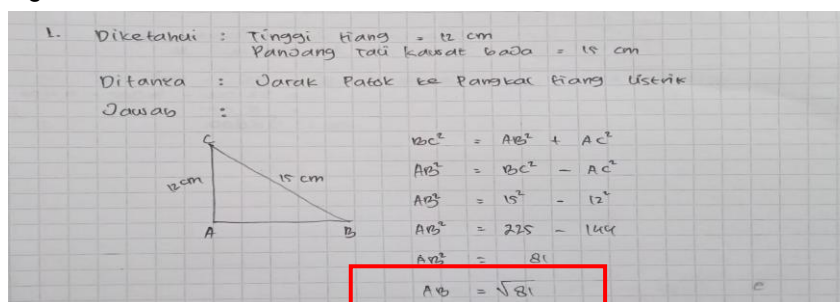 1. Diketahui : Tinggi tiang = 12 cm
Panjang tali kawat baja = 15 cm
Ditanya : Jarak Patok ke Pangkal tiang listrik
Jawab :
C
12 cm
15 cm
A
B
BC² = AB² + AC²
AB² = BC² - AC²
AB² = 15² - 12²
AB² = 225 - 144
AB² = 81
AB = √81